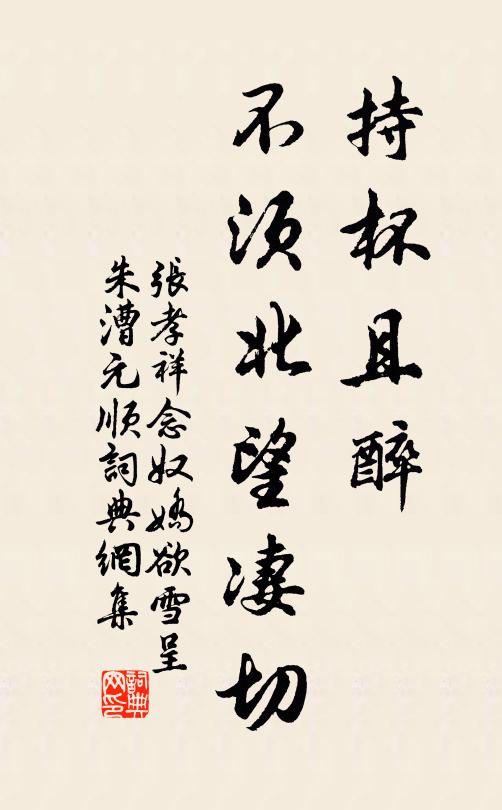 持杯且醉
不須北望凄切
張孝祥念奴嬌欲雪呈
朱漕元順詞典網集
詞典網印